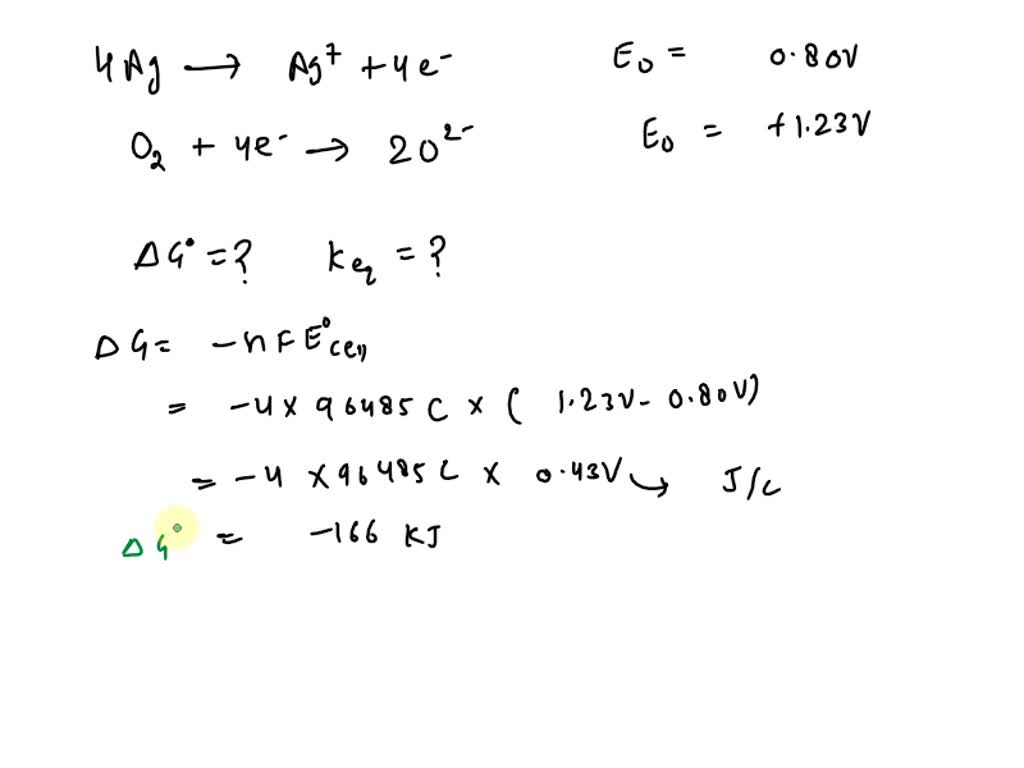 4Ag → Ag⁺ + 4e⁻ E₀ = 0.80V
O₂ + 4e⁻ → 2O²⁻ E₀ = +1.23V
ΔG° = ? Keq = ?
ΔG = -nFE°cell
= -4 × 96485 C × ( 1.23V - 0.80V)
= -4 × 96485 C × 0.43V → J/C
ΔG° = -166 KJ